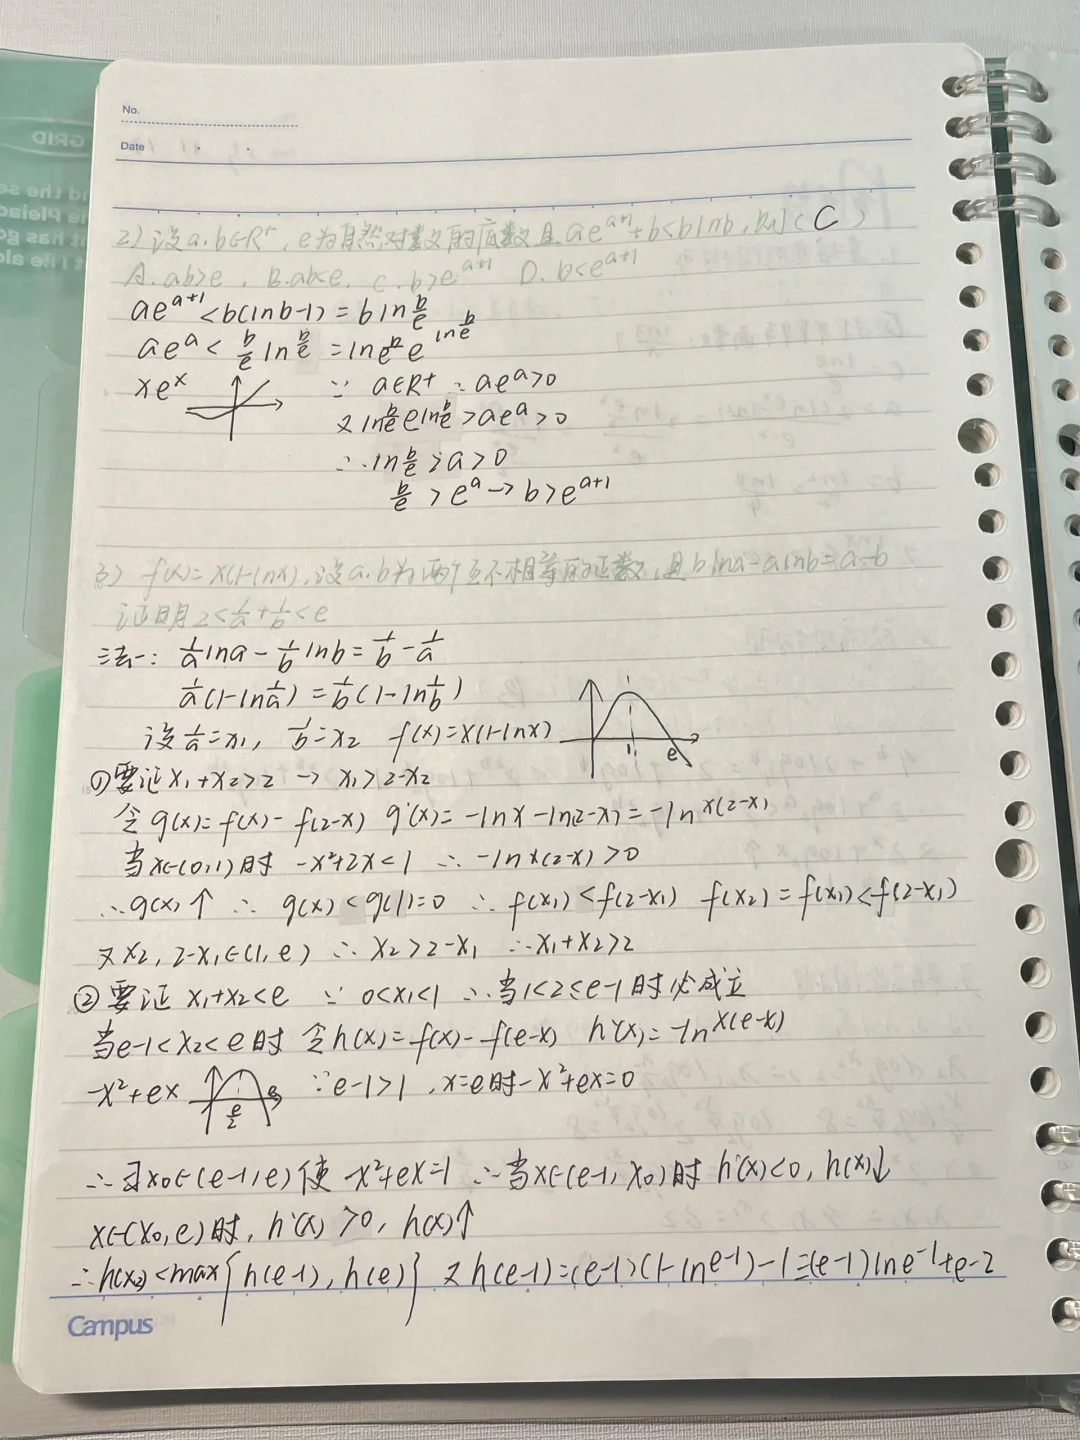 No.
Date
2) 设a.b∈R⁺, e为自然对数的底数且ae^{a+1}+b<blnb, 则(C)
A. ab>e, B. ab<e. C. b>e^{a+1} D. b<e^{a+1}
ae^{a+1}<b(lnb-1)=bln\frac{b}{e}
ae^a<\frac{b}{e}ln\frac{b}{e}=ln\frac{b}{e}e^{ln\frac{b}{e}}
xe^x ∵ a∈R⁺ ∴ae^a>0
又ln\frac{b}{e}e^{ln\frac{b}{e}}>ae^a>0
∴ln\frac{b}{e}>a>0
\frac{b}{e}>e^a→b>e^{a+1}
3) f(x)=x(1-lnx), 设a.b为两个互不相等的正数,且blna-alnb=a-b
证明2<\frac{1}{a}+\frac{1}{b}<e
法一: \frac{1}{a}lna-\frac{1}{b}lnb=\frac{1}{b}-\frac{1}{a}
\frac{1}{a}(1-ln\frac{1}{a})=\frac{1}{b}(1-ln\frac{1}{b})
设\frac{1}{a}=x₁, \frac{1}{b}=x₂ f(x)=x(1-lnx)
1 e
①要证x₁+x₂>2 → x₁>2-x₂
令g(x)=f(x)-f(2-x) g'(x)=-lnx-ln(2-x)=-ln^{x(2-x)}
当x∈(0,1)时 -x²+2x<1 ∴-lnx(2-x)>0
∴g(x)↑ ∴ g(x)<g(1)=0 ∴f(x₁)<f(2-x₁) f(x₂)=f(x₁)<f(2-x₁)
又x₂, 2-x₁∈(1,e) ∴x₂>2-x₁ ∴x₁+x₂>2
②要证x₁+x₂<e ∵ 0<x₁<1 ∴当1<2≤e-1时必成立
当e-1<x₂<e时 令h(x)=f(x)-f(e-x) h'(x)=-ln^{x(e-x)}
-x²+ex \frac{e}{2} e ∵e-1>1, x=e时-x²+ex=0
∴∃x₀∈(e-1,e)使-x²+ex=1 ∴当x∈(e-1,x₀)时h'(x)<0, h(x)↓
x∈(x₀,e)时, h'(x)>0, h(x)↑
∴h(x₂)<max{h(e-1), h(e)} 又h(e-1)=(e-1)(1-ln^{e-1})-1=(e-1)lne^{-1}+e-2
Campus